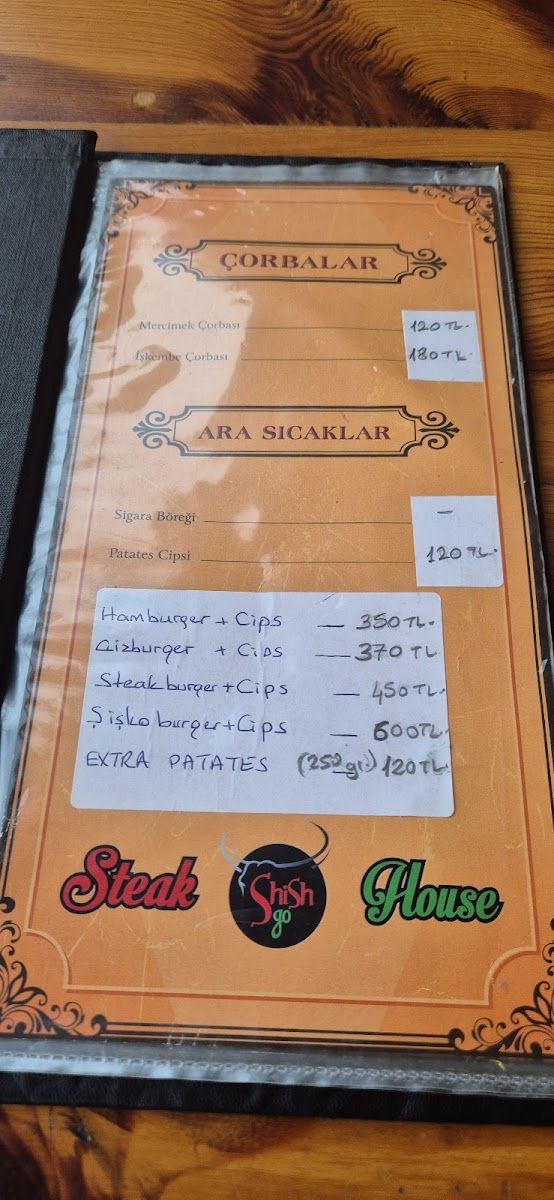 ÇORBALAR
Mercimek Çorbası 120 TL.
İşkembe Çorbası 180 TL.
ARA SICAKLAR
Sigara Böreği –
Patates Cipsi 120 TL.
Hamburger + Cips — 350 TL.
Cizburger + Cips — 370 TL
Steak burger + Cips — 450 TL.
Şişko burger + Cips — 600 TL.
EXTRA PATATES (250 gr.) 120 TL.
Steak ShiSh go House